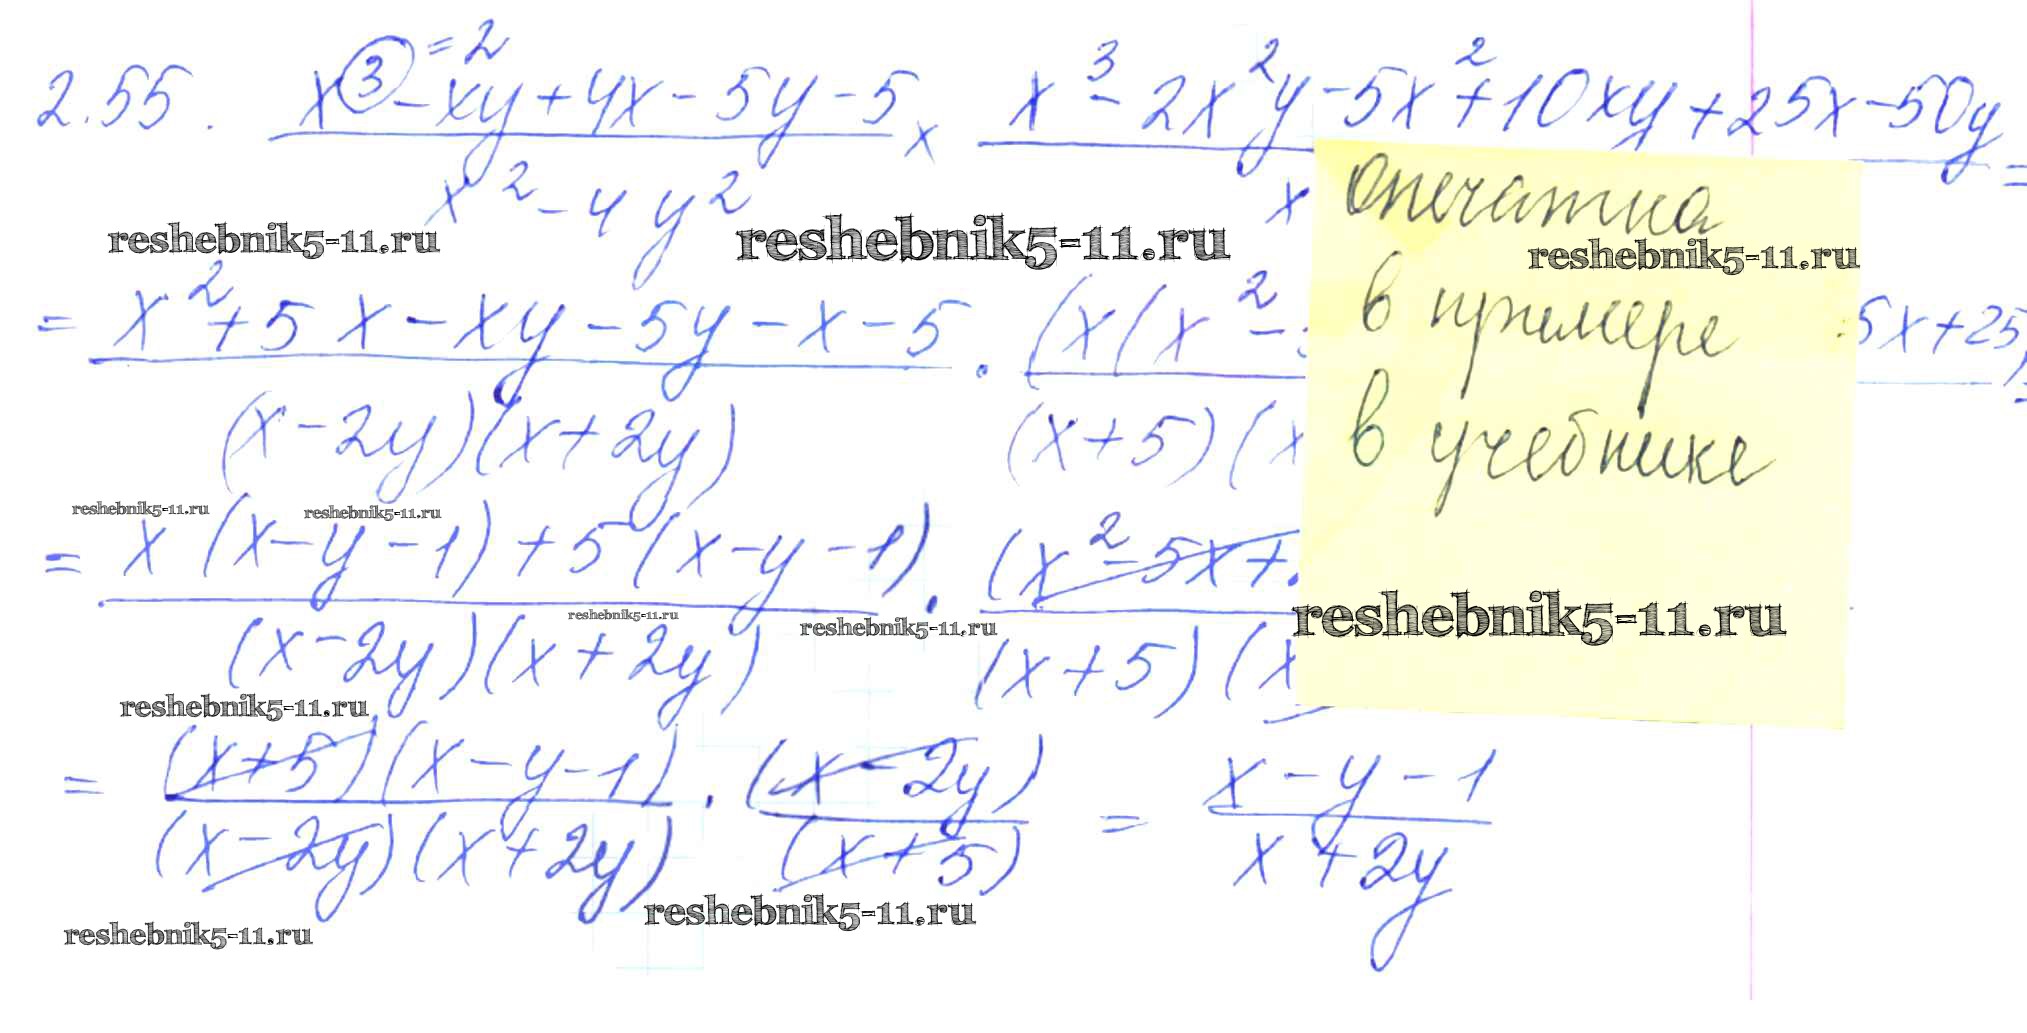 2.55. (x^3 - xy + 4x - 5y - 5)/(x^2 - 4y^2) × (x^3 - 2x^2y - 5x^2 + 10xy + 25x - 50y)/(x =
= 2
опечатка
в примере
в учебнике
reshebnik5-11.ru reshebnik5-11.ru reshebnik5-11.ru
= (x^2 + 5x - xy - 5y - x - 5)/((x - 2y)(x + 2y)) · (x(x^2 - 5x + 25)/((x + 5)(x =
reshebnik5-11.ru reshebnik5-11.ru
= (x(x - y - 1) + 5(x - y - 1))/((x - 2y)(x + 2y)) · (x^2 - 5x + /((x + 5)(x
reshebnik5-11.ru reshebnik5-11.ru reshebnik5-11.ru
reshebnik5-11.ru
= ((x + 5)(x - y - 1))/((x - 2y)(x + 2y)) · (x - 2y)/(x + 5) = (x - y - 1)/(x + 2y)
reshebnik5-11.ru reshebnik5-11.ru